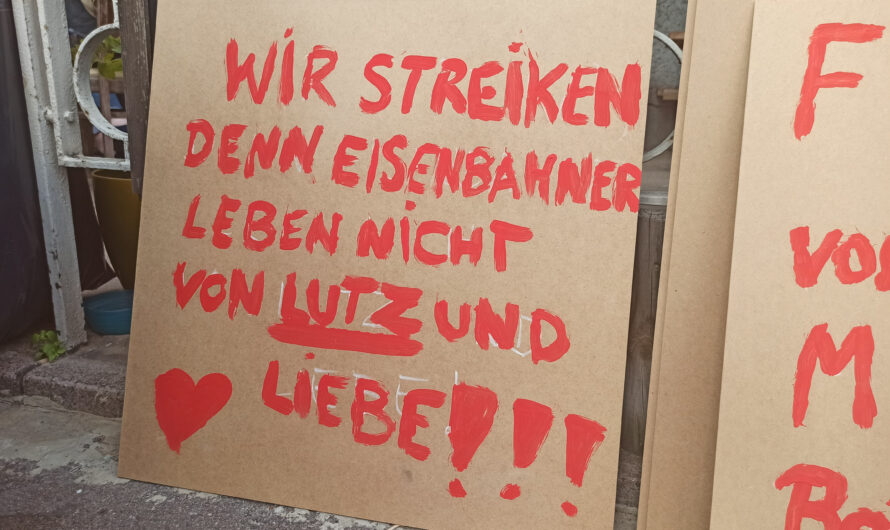 WIR STREIKEN
DENN EISENBAHNER
LEBEN NICHT
VON LUTZ UND
LIEBE!!!
F
M